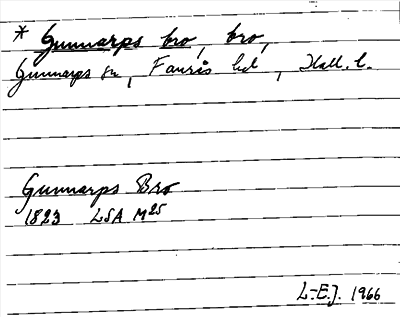 * Gunnarps bro, bro,
Gunnarps sn, Faurås hd, Hall. l.
Gunnarps Bro
1823 LSA M25
L-E.J. 1966